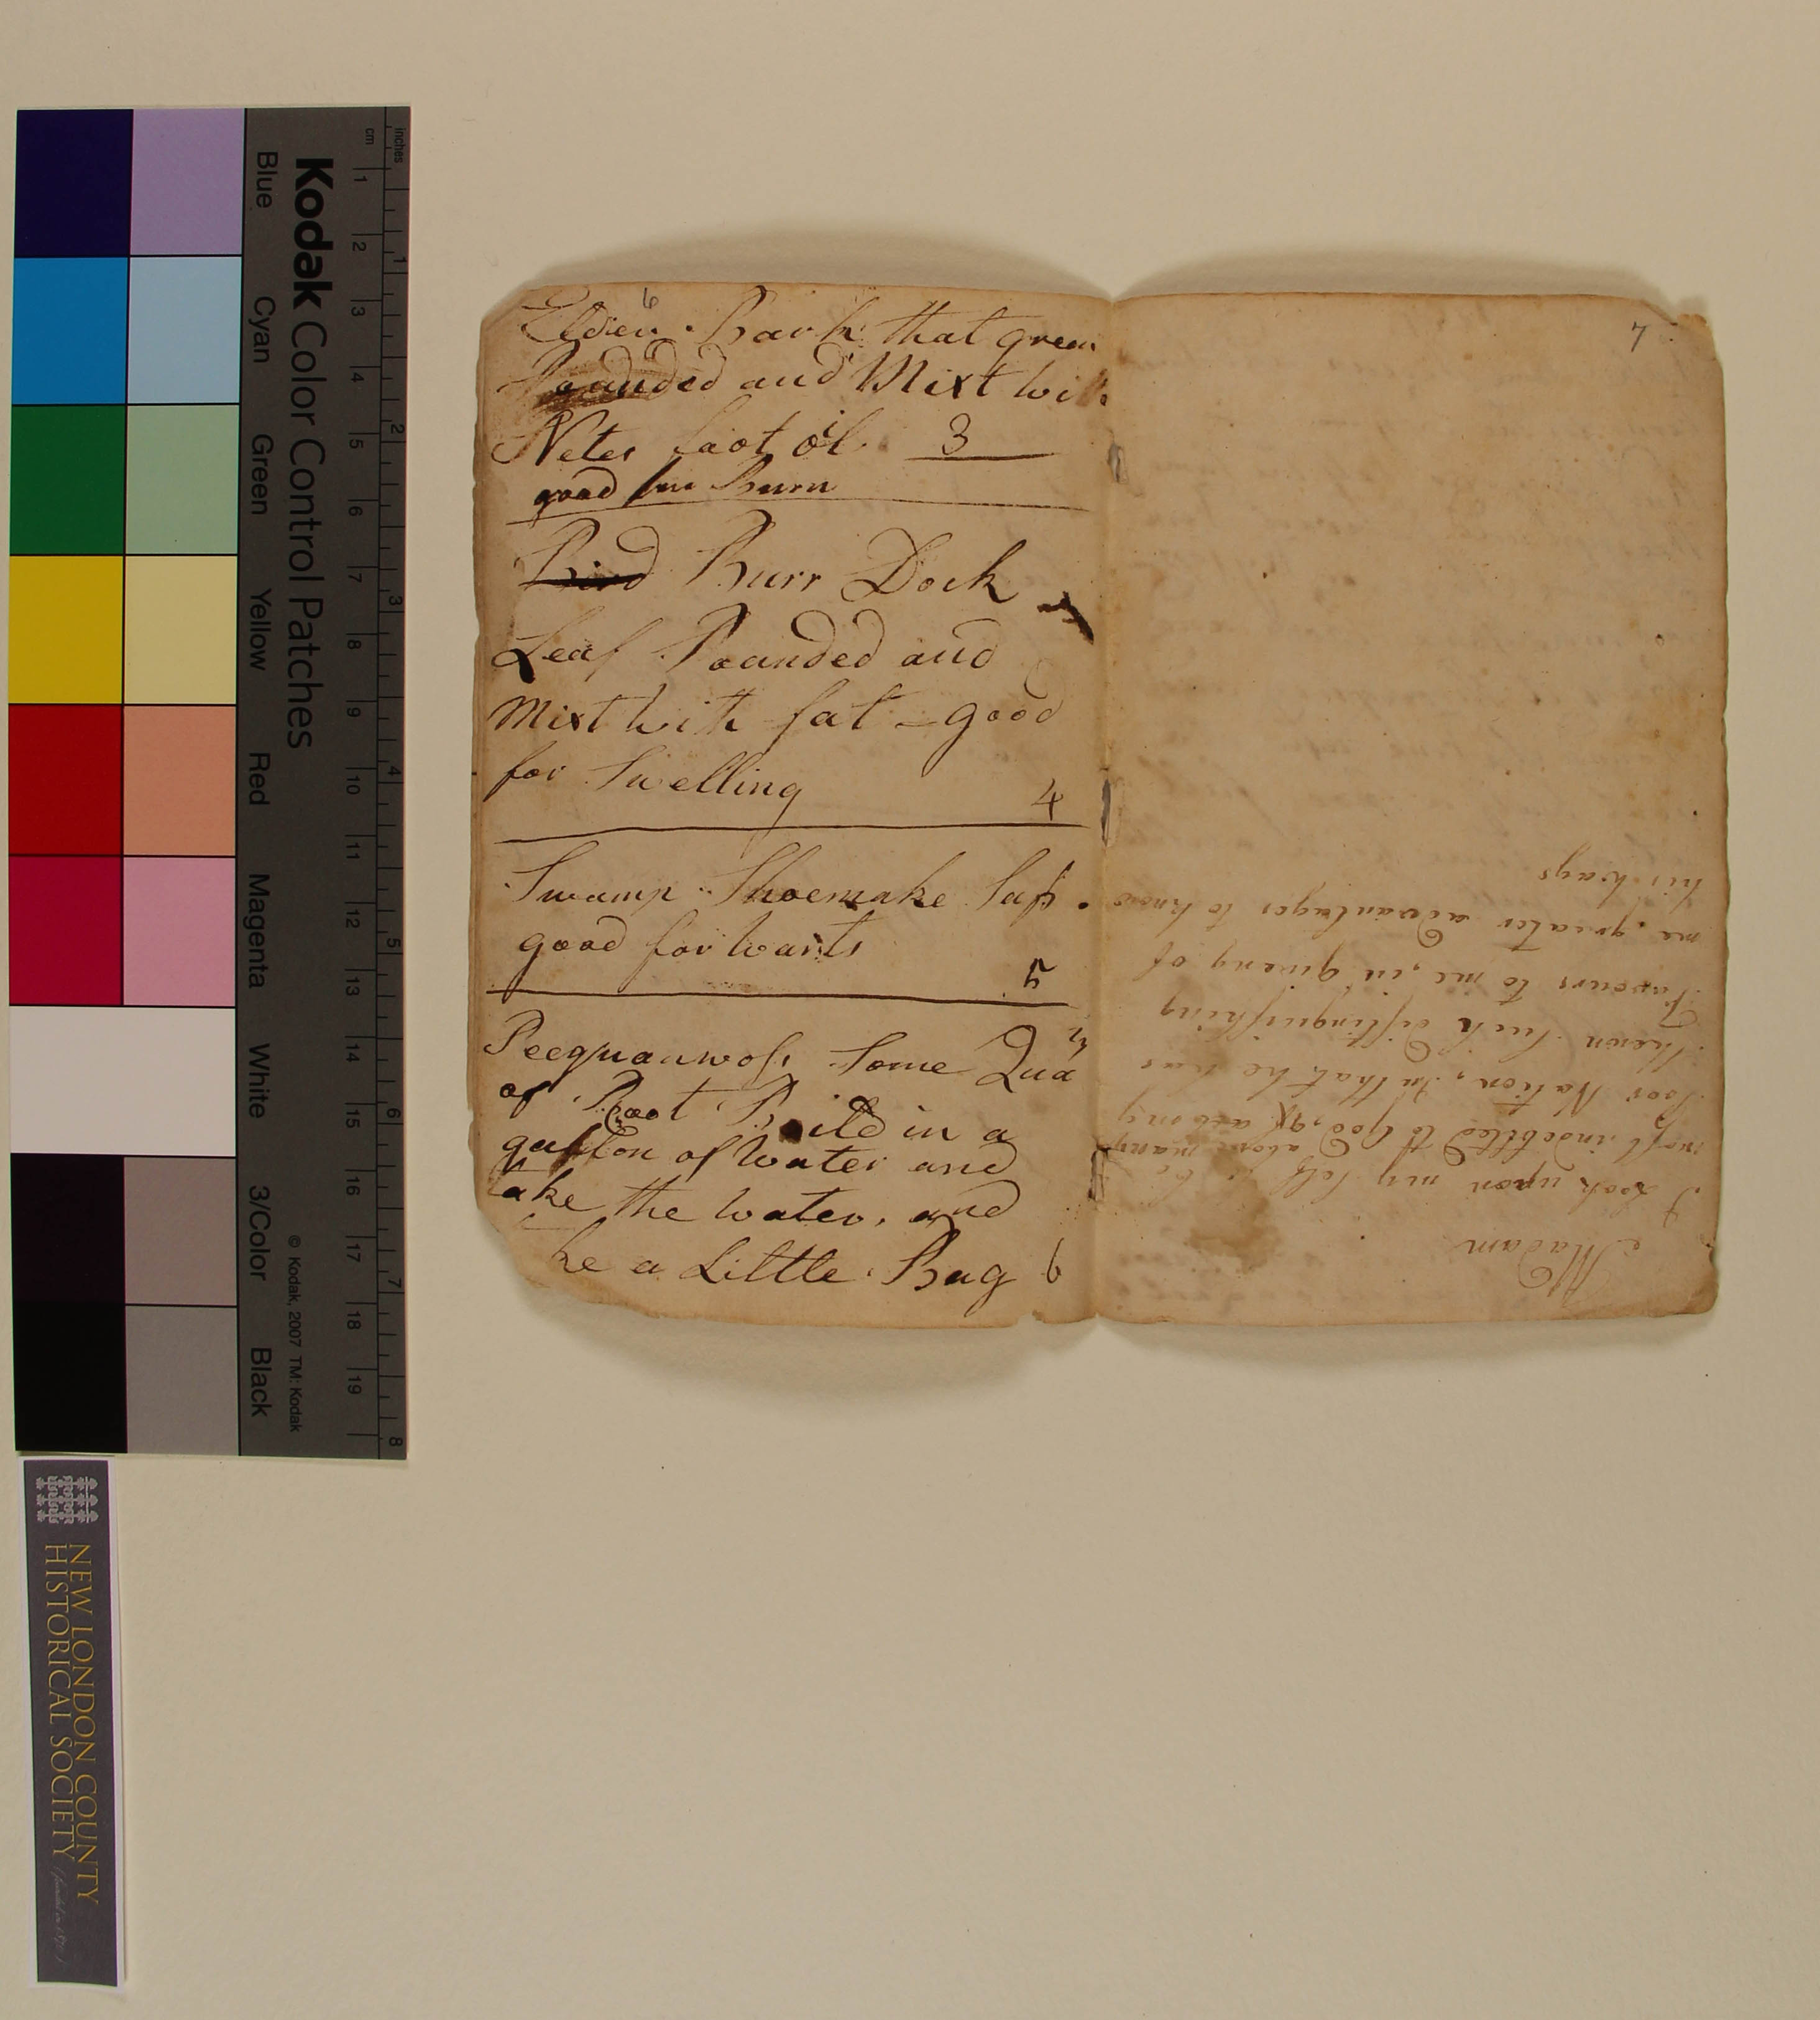 6
Elder Bark that green
Pounded and Mixt with
Netes foot oil 3
good for Burn
Bird Burr Dock
Leaf Pounded and
Mixt with fat – good
for Swelling
4
Swamp Shoemake Sap
good for warts
5
Peequanwoss Some Quan
of Root Boild in a
gallon of Water and
take the Water, and
ke a Little Bag 6
7
Madam
I Look upon my Self to be
most indebted to God, above many among
Poor Nation, In that he has
Shown Such distinguishing
Favours to me, in giveng of
me, greater advantages to know
his ways
Kodak Color Control Patches
Blue
Cyan
Green
Yellow
Red
Magenta
White
3/Color
Black
© Kodak, 2007 TM: Kodak
cm 1 2 3 4 5 6 7 8 9 10 11 12 13 14 15 16 17 18 19
inches 1 2 3 4 5 6 7 8
NEW LONDON COUNTY
HISTORICAL SOCIETY